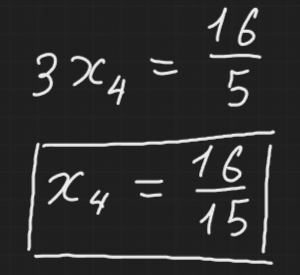 3x₄ = 16/5
x₄ = 16/15